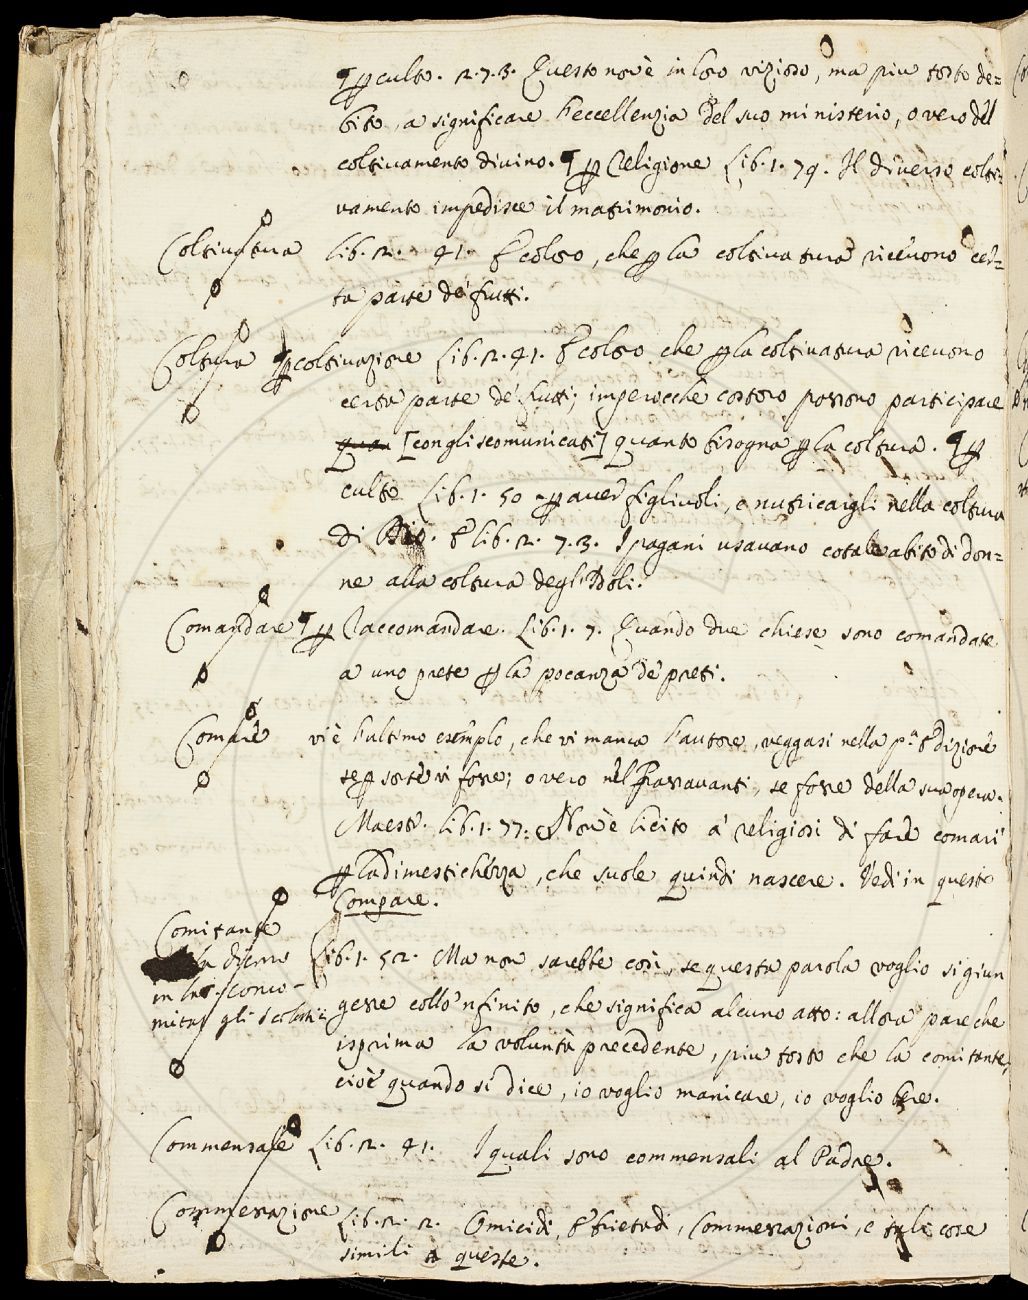 ¶ ꝑ culto. 2. 7. 3. Questo non è in loro vizioso, ma piu tosto de=
bito, a significare l'eccellenzia del suo ministerio, o vero del
coltivamento divino. ¶ ꝑ Religione Lib. 1. 79. Il diverso colti=
vamento impedisce il matrimonio.
Coltivatura Lib. 2. 41. E coloro, che ꝑ la coltivatura ricevono cer=
ta parte de' frutti.
Coltura ¶ ꝑ coltivazione Lib. 2. 41. E coloro che ꝑ la coltivatura ricevono
certa parte de' frutti; imperocchè costoro possono participare
[con gli scomunicati] quanto bisogna ꝑ la coltura. ¶ ꝑ
culto Lib. 1. 50 ꝑ aver figliuoli, e nutricargli nella coltura
di Dio. E lib. 2. 7. 3. I pagani usavano cotale abito di don=
ne alla coltura degl'Idoli.
Comandare ¶ ꝑ Raccomandare. Lib. 1. 7. Quando due chiese sono comandate
a uno prete ꝑ la pocanza de' preti.
Comare vi è l'ultimo esemplo, che vi manca l'autore, veggasi nella pª Edizione
se ꝑ sorte vi fosse; o vero nel Passavanti, se fosse della sua opera.
Maestr. Lib. 1. 77. Non è licito a' religiosi di fare comari
ꝑ la dimestichezza, che suole quindi nascere. Vedi in questo
Compare.
Comitante
la dicono Lib. 1. 52. Ma non sarebbe così, se questa parola voglio si giun
in lat. conco-
mitans gli scolasti= gesse collo 'nfinito, che significa alcuno atto: allora pare che
isprima la voluntà precedente, piu tosto che la comitante,
cioè quando si dice, io voglio manicare, io voglio bere.
Commensale Lib. 2. 41. I quali sono commensali al Padre.
Commessazione Lib. 2. 2. Omicidi, Ebrietadi, Commessazioni, e tali cose
simili a queste.